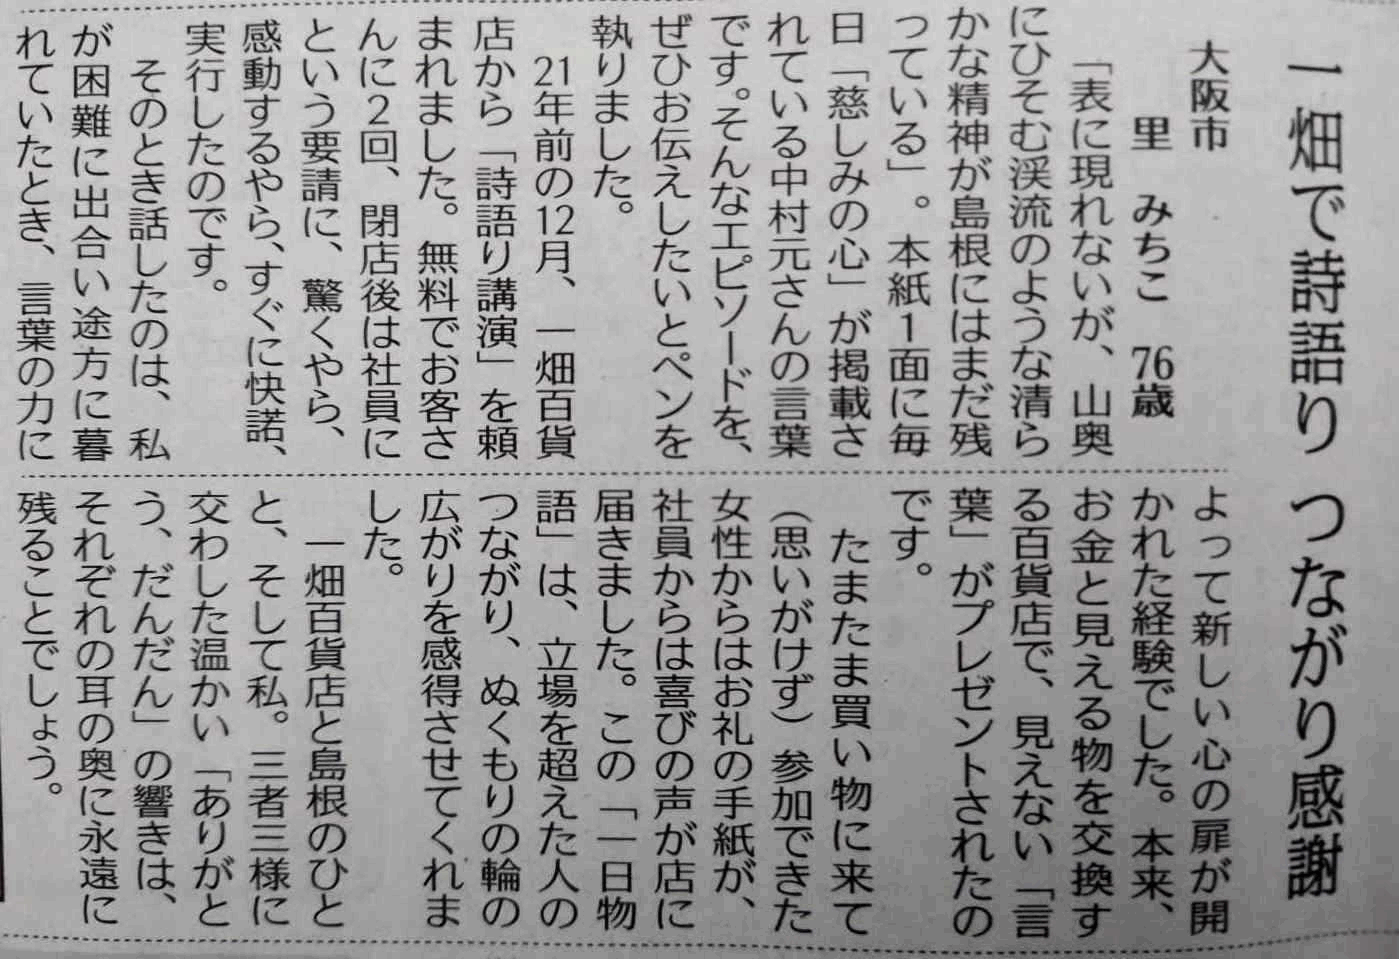 一畑で詩語り つながり感謝
大阪市
里 みちこ 76歳
「表に現れないが、山奥
にひそむ渓流のような清ら
かな精神が島根にはまだ残
っている」。本紙1面に毎
日「慈しみの心」が掲載さ
れている中村元さんの言葉
です。そんなエピソードを、
ぜひお伝えしたいとペンを
執りました。
21年前の12月、一畑百貨
店から「詩語り講演」を頼
まれました。無料でお客さ
んに2回、閉店後は社員に
という要請に、驚くやら、
感動するやら、すぐに快諾、
実行したのです。
そのとき話したのは、私
が困難に出合い途方に暮
れていたとき、言葉の力に
よって新しい心の扉が開
かれた経験でした。本来、
お金と見える物を交換す
る百貨店で、見えない「言
葉」がプレゼントされたの
です。
たまたま買い物に来て
(思いがけず)参加できた
女性からはお礼の手紙が、
社員からは喜びの声が店に
届きました。この「一日物
語」は、立場を超えた人の
つながり、ぬくもりの輪の
広がりを感得させてくれま
した。
一畑百貨店と島根のひと
と、そして私。三者三様に
交わした温かい「ありがと
う、だんだん」の響きは、
それぞれの耳の奥に永遠に
残ることでしょう。